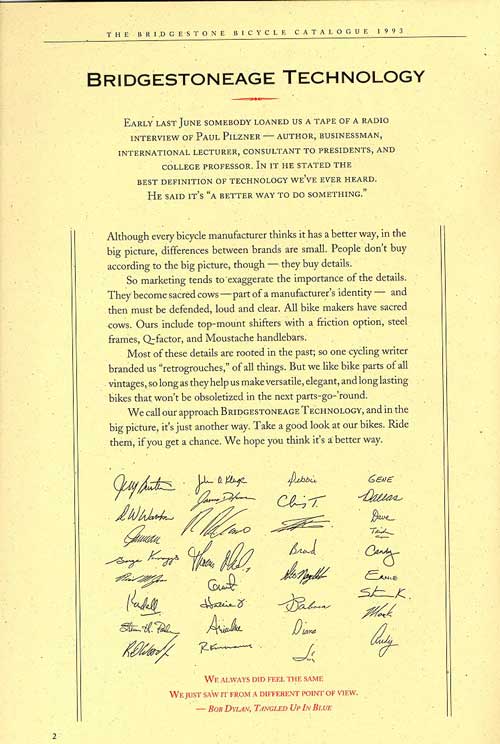 THE BRIDGESTONE BICYCLE CATALOGUE 1993
BRIDGESTONEAGE TECHNOLOGY
EARLY LAST JUNE SOMEBODY LOANED US A TAPE OF A RADIO
INTERVIEW OF PAUL PILZNER — AUTHOR, BUSINESSMAN,
INTERNATIONAL LECTURER, CONSULTANT TO PRESIDENTS, AND
COLLEGE PROFESSOR. IN IT HE STATED THE
BEST DEFINITION OF TECHNOLOGY WE'VE EVER HEARD.
HE SAID IT'S "A BETTER WAY TO DO SOMETHING."
Although every bicycle manufacturer thinks it has a better way, in the
big picture, differences between brands are small. People don't buy
according to the big picture, though — they buy details.
So marketing tends to exaggerate the importance of the details.
They become sacred cows — part of a manufacturer's identity — and
then must be defended, loud and clear. All bike makers have sacred
cows. Ours include top-mount shifters with a friction option, steel
frames, Q-factor, and Moustache handlebars.
Most of these details are rooted in the past; so one cycling writer
branded us "retrogrouches," of all things. But we like bike parts of all
vintages, so long as they help us make versatile, elegant, and long lasting
bikes that won't be obsoletized in the next parts-go-'round.
We call our approach BRIDGESTONEAGE TECHNOLOGY, and in the
big picture, it's just another way. Take a good look at our bikes. Ride
them, if you get a chance. We hope you think it's a better way.
Debbie GENE
Chris T. Dallas
Dave
Brad Candy
Ernie
Kendall Grant Barbara Stan K.
Ariadne Diane Mark
Andy
WE ALWAYS DID FEEL THE SAME
WE JUST SAW IT FROM A DIFFERENT POINT OF VIEW.
— BOB DYLAN, TANGLED UP IN BLUE
2